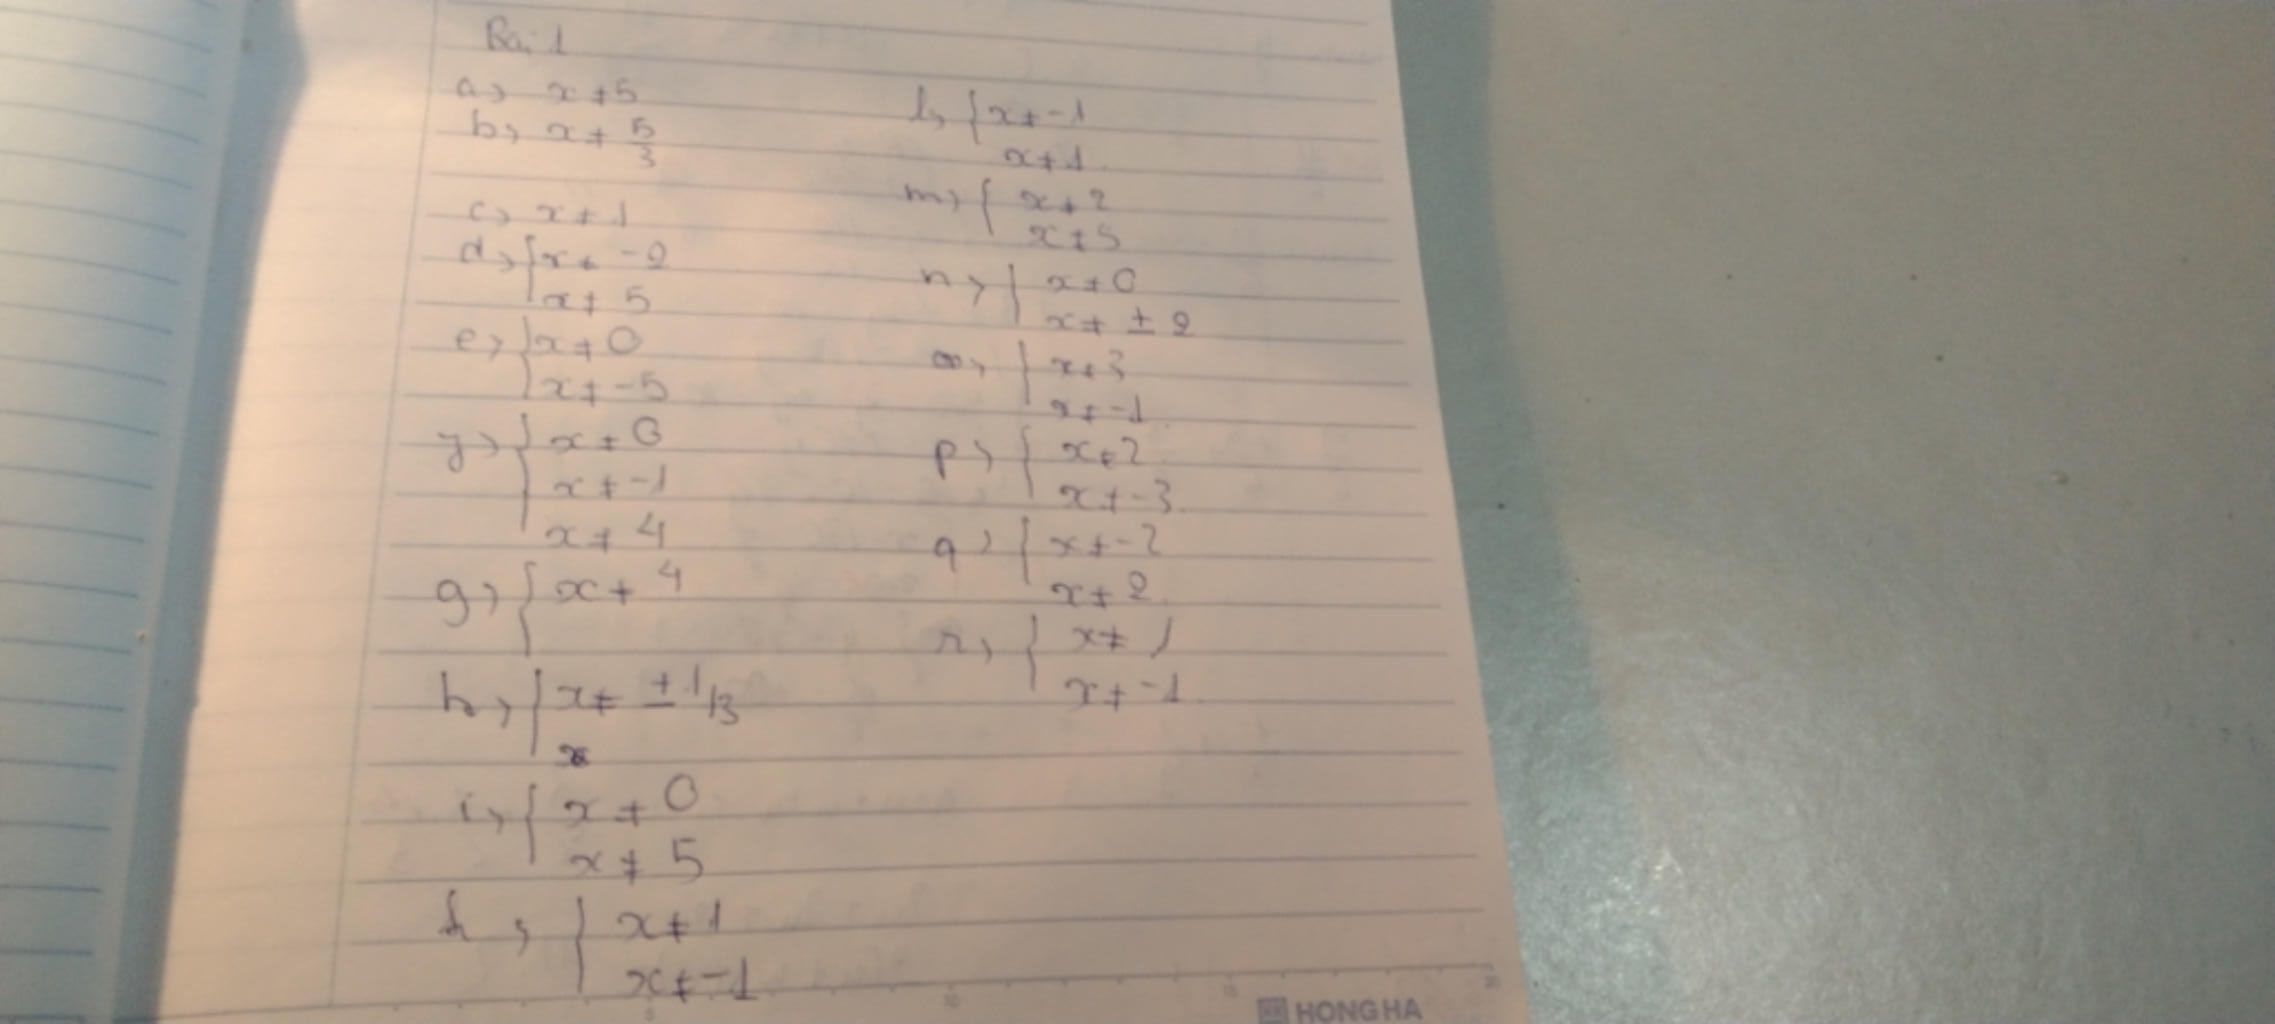 Bài 1
a, x ≠ 5
b, x ≠ 5/3
c, x ≠ 1
d, { x ≠ -2
x ≠ 5
e, { x ≠ 0
x ≠ -5
y, { x ≠ 0
x ≠ -1
x ≠ 4
g, { x ≠ 4
h, { x ≠ ±1/3
x
i, { x ≠ 0
x ≠ 5
k, { x ≠ 1
x ≠ -1
l, { x ≠ -1
x ≠ 1
m, { x ≠ 2
x ≠ 5
n, { x ≠ 0
x ≠ ± 2
o, { x ≠ 3
x ≠ -1
p, { x ≠ 2
x ≠ -3
q, { x ≠ -2
x ≠ 2
r, { x ≠ 1
x ≠ -1
5 10 15 20
HONG HA